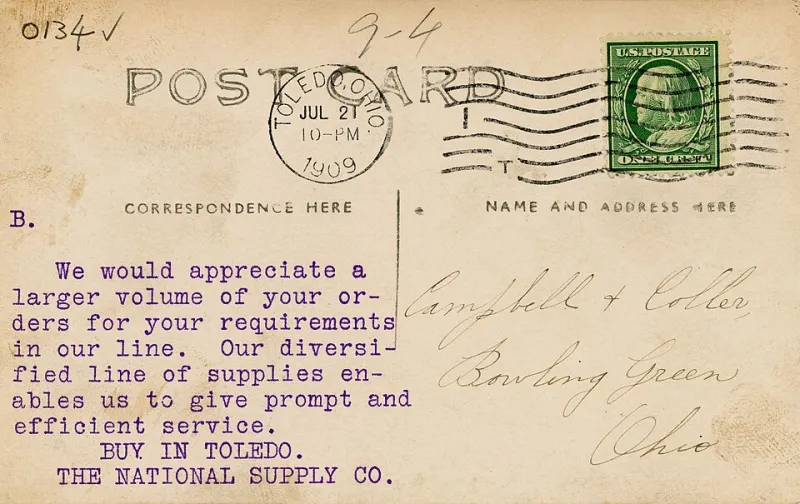 0134✓
9-4
POST CARD
TOLEDO, OHIO
JUL 21
10-PM
1909
I
T
U.S. POSTAGE
ONE CENT
CORRESPONDENCE HERE
NAME AND ADDRESS HERE
B.
We would appreciate a
larger volume of your or-
ders for your requirements
in our line. Our diversi-
fied line of supplies en-
ables us to give prompt and
efficient service.
BUY IN TOLEDO.
THE NATIONAL SUPPLY CO.
Campbell & Coller,
Bowling Green
Ohio